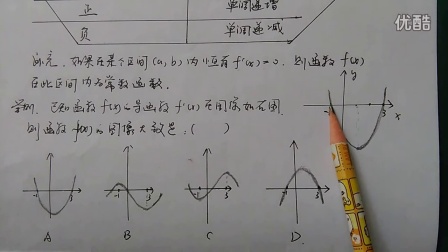 优酷
正 单调递增
负 单调递减
补充：如果在某个区间(a,b)内恒有f'(x)=0，则函数f(x)
在此区间内为常数函数。
已知函数f(x)的导函数f'(x)的图像如右图，
则函数f(x)的图像大致是：( )
y
-1 3 x
-1 3
-1 3
-1 3
-1 3
A B C D.